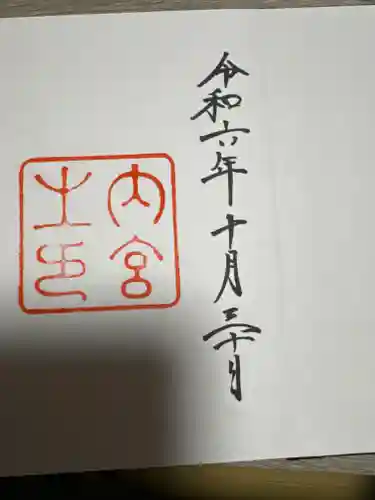 令和六年十月三十日
内宮
之印